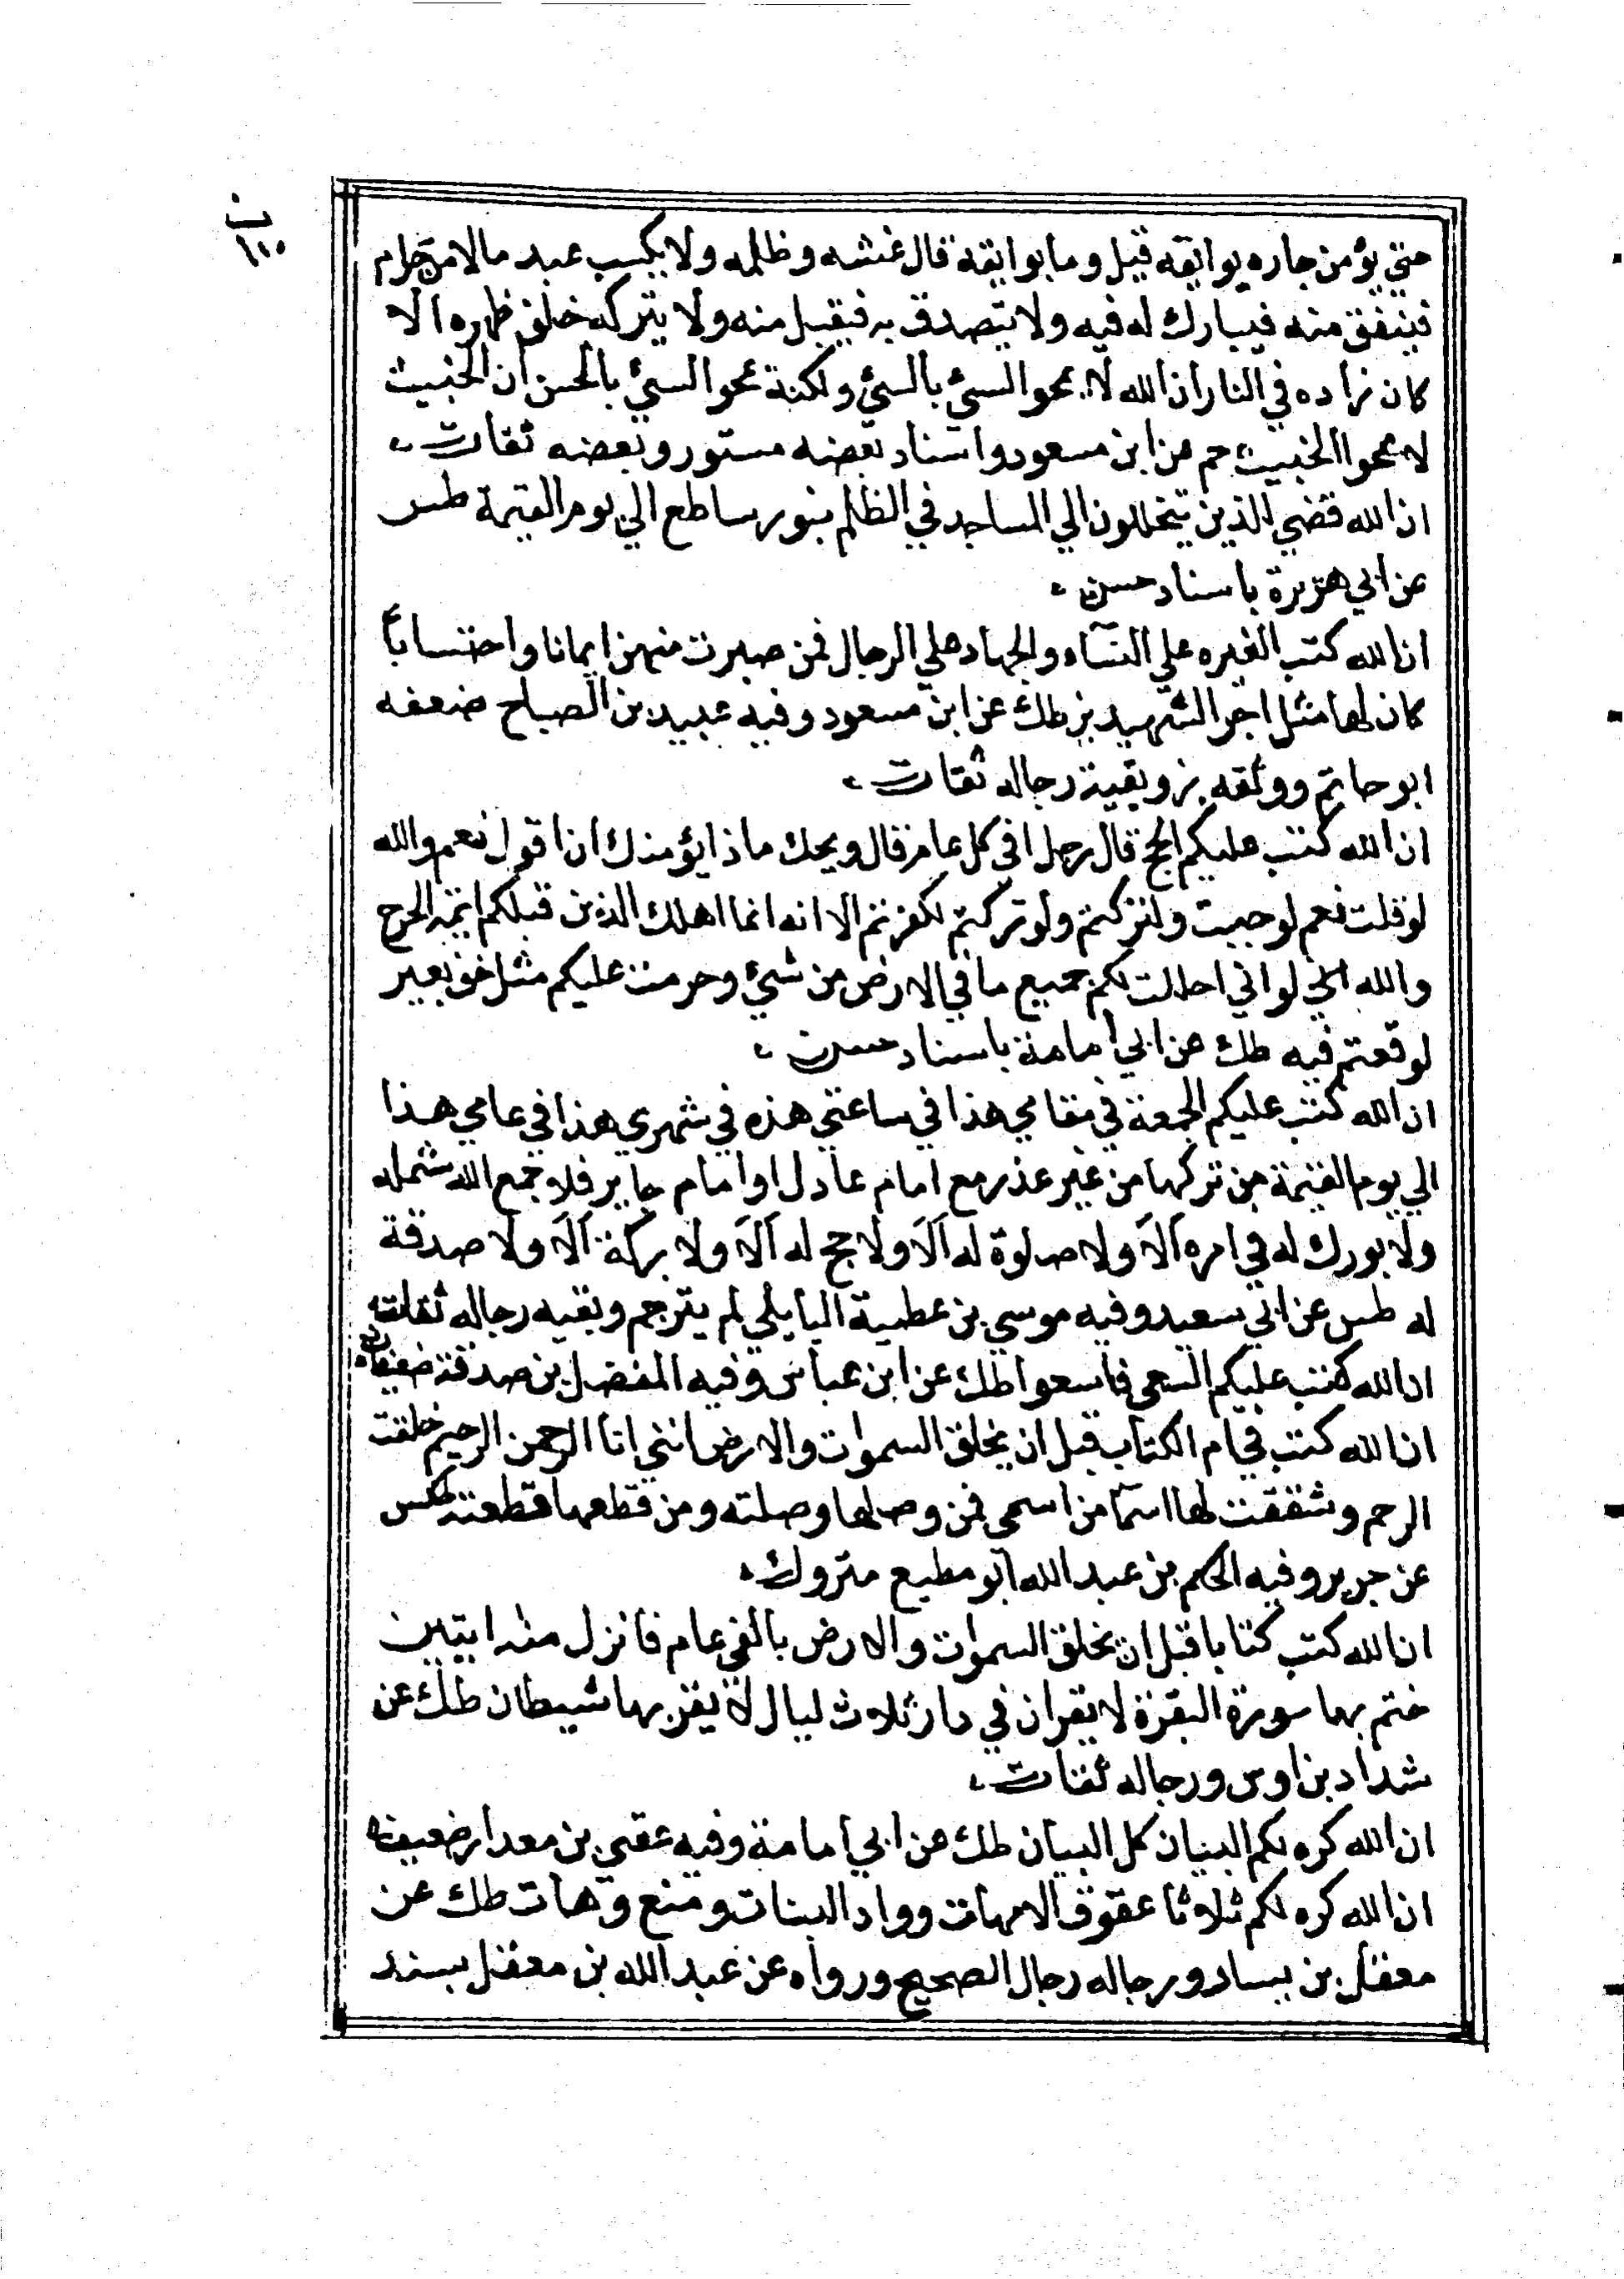 ن
١١٠
حتي يؤمن جاره بوايقه قيل وما بوايقه قال غشه وظلمه ولا يكسب عبد مالا من حرام
فينفق منه فيبارك له فيه ولا يتصدق به فيقبل منه ولا يتركه خلف ظهره الا
كان زاده في النار ان الله لا يمحوا السيئ بالسيئ ولكنه يمحوا السيئ بالحسن ان الخبيث
لا يمحوا الخبيث حم عن ابن مسعود واسناد بعضه مستور وبعضه ثقات
ان الله قضي للذين يتخللون الي المساجد في الظلم بنور ساطع الي يوم القيمة طس
عن ابي هريرة باسناد حسن
ان الله كتب الغيره علي النسآء والجهاد علي الرجال فمن صبرت منهن ايمانا واحتسابا
كان لها مثل اجر الشهيد بز طك عن ابن مسعود وفيه عبيد بن الصباح ضعفه
ابو حاتم ووثقه بز وبقية رجاله ثقات
ان الله كتب عليكم الحج قال رجل افي كل عام قال ويحك ماذا يؤمنك ان اقول نعم والله
لو قلت نعم لوجبت ولتركتم ولو تركتم لكفرتم الا انه انما اهلك الذين قبلكم ايمة الحرج
والله اني لو اني احللت لكم جميع ما في الارض من شئ وحرمت عليكم مثل خف بعير
لوقعتم فيه طك عن ابي امامة باسناد حسن
ان الله كتب عليكم الجمعة في مقامي هذا في ساعتي هذه في شهري هذا في عامي هذا
الي يوم القيمة من تركها من غير عذر مع امام عادل او امام جاير فلا جمع الله شمله
ولا بورك له في امره الا ولا صلوة له الا ولا حج له الا ولا بركة الا ولا صدقة
له طس عن ابي سعيد وفيه موسي بن عطية البابلي لم يترجم وبقيه رجاله ثقات
ان الله كتب عليكم السعي فاسعوا طك عن ابن عباس وفيه المفضل بن صدقة ضعيف
ان الله كتب في ام الكتاب قبل ان يخلق السموات والارض انني انا الرحمن الرحيم خلقت
الرحم وشققت لها اسما من اسمي فمن وصلها وصلته ومن قطعها قطعته طس
عن جرير وفيه الحكم بن عبد الله ابو مطيع متروك
ان الله كتب كتابا قبل ان يخلق السموات والارض بالفي عام فانزل منه ايتين
ختم بهما سورة البقرة لا يقران في دار ثلاث ليال لا يقربها شيطان طك عن
شداد بن اوس ورجاله ثقات
ان الله كره لكم البيان كل البيان طك عن ابي امامة وفيه عفير بن معدان ضعيف
ان الله كره لكم ثلاثا عقوق الامهات وواد البنات ومنع وهات طك عن
معقل بن يسار ورجاله رجال الصحيح ورواه عن عبد الله بن مغفل بسند